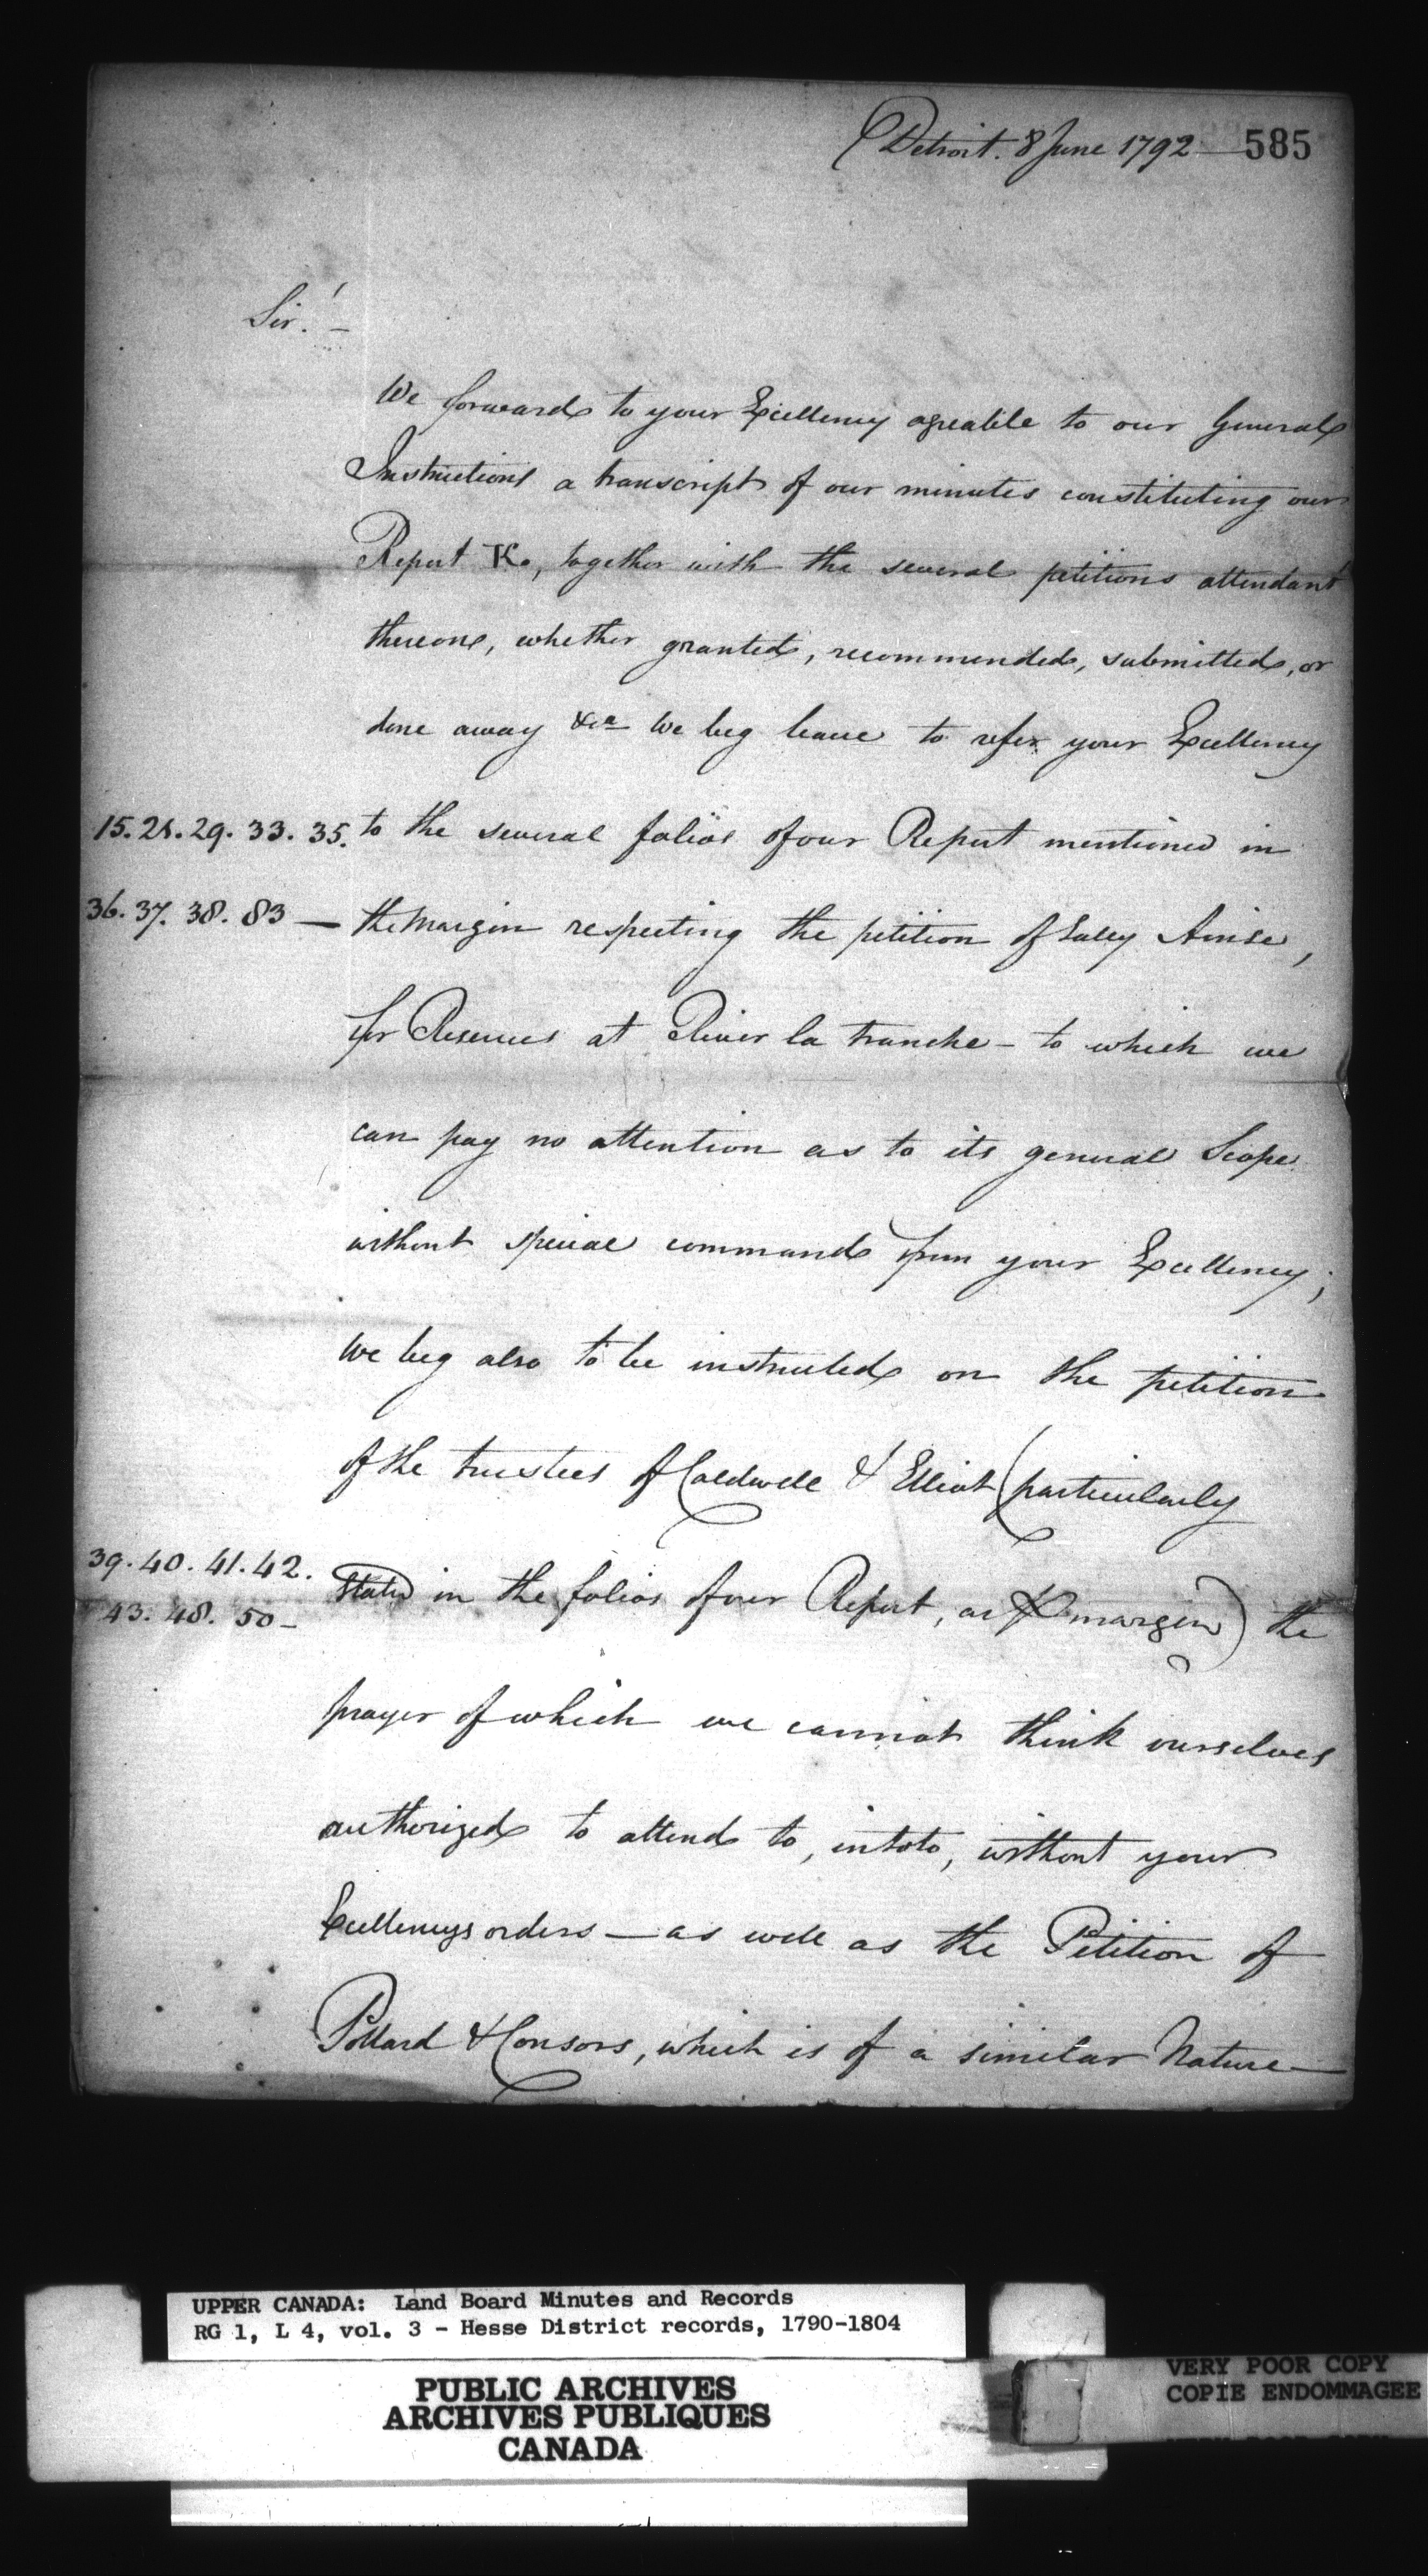 Detroit. 8 June 1792 — 585
Sir! —
We forward to your Excellency agreable to our General
Instructions a transcript of our minutes constituting our
Report K., together with the several petitions attendant
thereon, whether granted, recommended, submitted, or
done away &ca We beg leave to refer your Excellency
15. 21. 29. 33. 35. to the several folios of our Report mentioned in
36. 37. 38. 83 — the Margin respecting the petition of Sally Ainse,
for Reserves at River la tranche — to which we
can pay no attention as to its general Scope
without special command from your Excellency;
we beg also to be instructed on the petition
of the trustees of Caldwell & Elliot (particularly
39. 40. 41. 42. stated in the folios of our Report, as margin) the
43. 48. 50 —
prayer of which we cannot think ourselves
authorized to attend to, in toto, without your
Excellencys orders — as well as the Petition of
Pollard & Consors, which is of a similar Nature —
UPPER CANADA: Land Board Minutes and Records
RG 1, L 4, vol. 3 - Hesse District records, 1790-1804
PUBLIC ARCHIVES
ARCHIVES PUBLIQUES
CANADA
VERY POOR COPY
COPIE ENDOMMAGEE